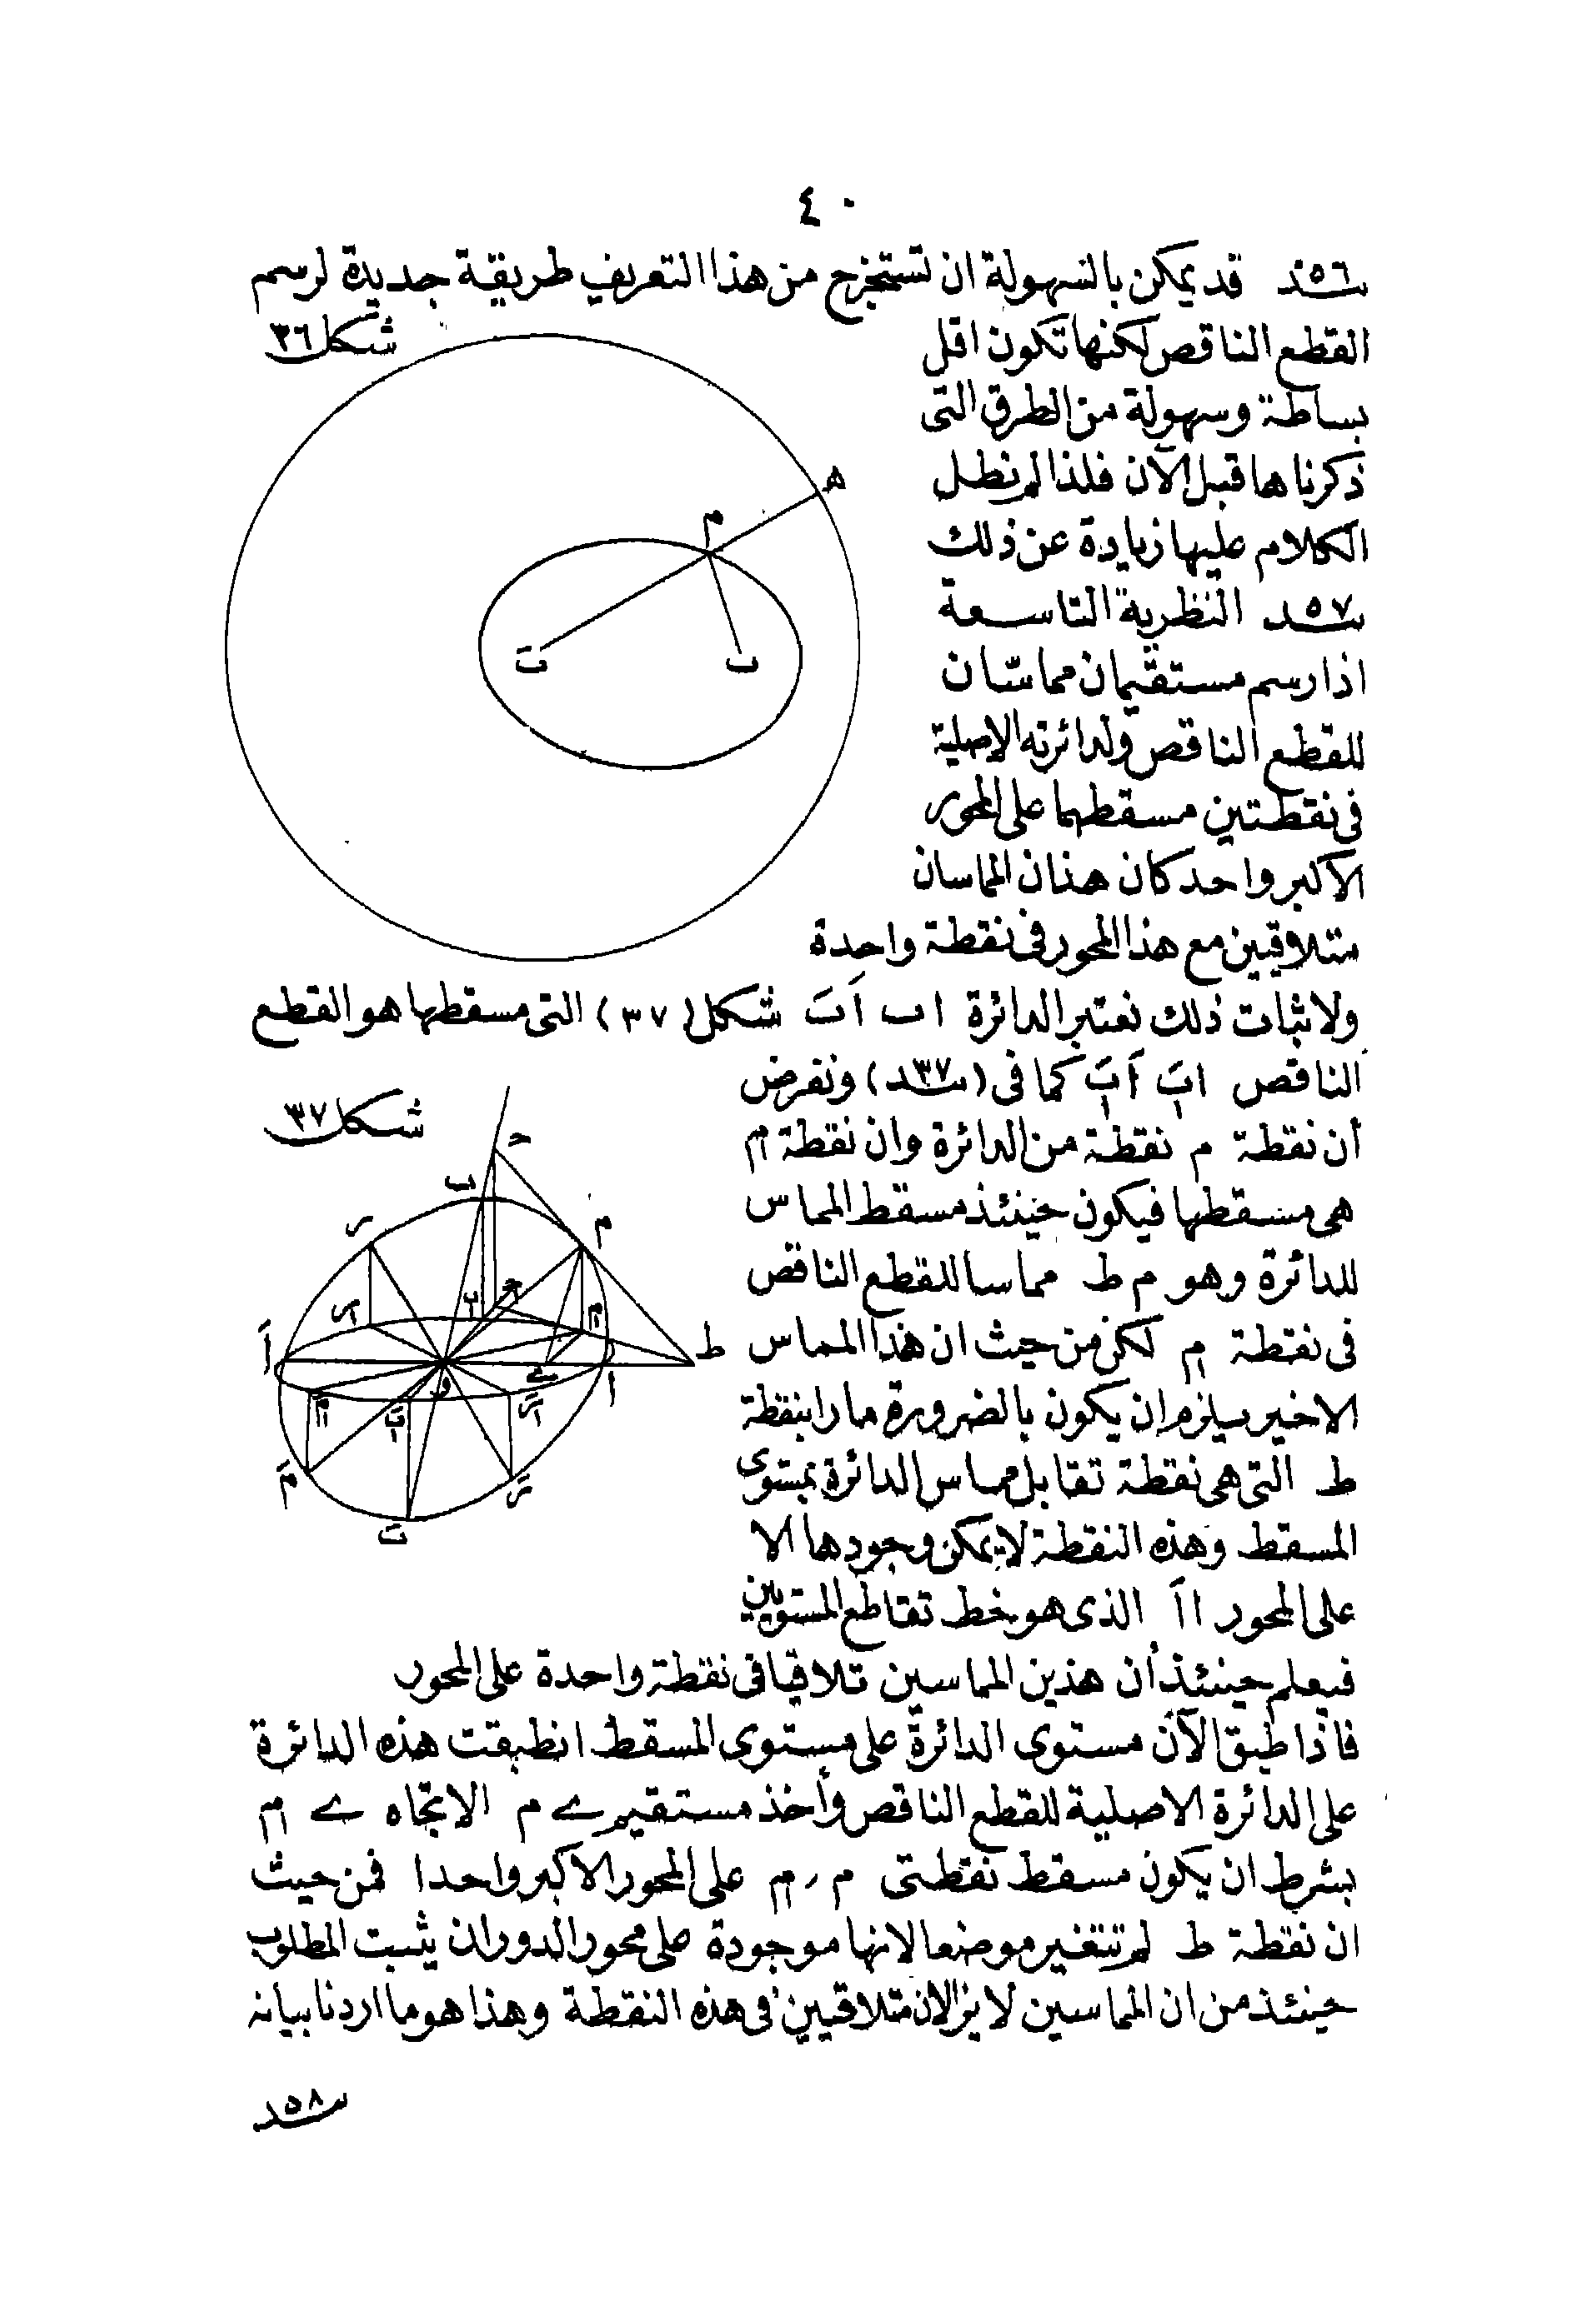 ٤٠
٥٦ سند قد يمكن بالسهولة ان تستخرج من هذا التعريف طريقة جديدة لرسم
شكل ٣٦
القطع الناقص لكنها تكون اقل
بساطة وسهولة من الطرق التى
ذكرناها قبل الآن فلذا لم نطل
الكلام عليها زيادة عن ذلك
٥٧ سند النظرية التاسعة
اذا رسم مستقيمان مماسّان
للقطع الناقص ولدائرته الاصلية
فى نقطتين مسقطهما على المحور
الاكبر واحد كان هذان المماسان
متلاقيين مع هذا المحور فى نقطة واحدة
ه
م
تَ ب
ولاثبات ذلك نعتبر الدائرة اب اَبَ شكل (٣٧) التى مسقطها هو القطع
الناقص ابَ اَبَ كما فى (٣٧ سند) ونفرض
شكل ٣٧
أن نقطة م نقطة من الدائرة وان نقطة م
هى مسقطها فيكون حينئذ مسقط المماس
للدائرة وهو م ط مماسا للقطع الناقص
فى نقطة م لكن من حيث ان هذا المماس
الاخير يلزم ان يكون بالضرورة مارا بنقطة
ط التى هى نقطة تقابل مماس الدائرة بمستوى
المسقط وهذه النقطة لا يمكن وجودها الا
على المحور ا اَ الذى هو خط تقاطع المستويين
ح
ب
م
ر
ط
اَ
و
ا
مَ
رَ
بَ
فيعلم حينئذ أن هذين المماسين تلاقيا فى نقطة واحدة على المحور
فاذا طبق الآن مستوى الدائرة على مستوى المسقط انطبقت هذه الدائرة
على الدائرة الاصلية للقطع الناقص وأخذ مستقيم ے م الاتجاه ے م
بشرط ان يكون مسقط نقطتى م ر م على المحور الاكبر واحدا فمن حيث
ان نقطة ط لم تتغير موضعا لانها موجودة على محور الدوران يثبت المطلوب
حينئذ من ان المماسين لا يزالان متلاقيين فى هذه النقطة وهذا هو ما اردنا بيانه
٥٨ سند